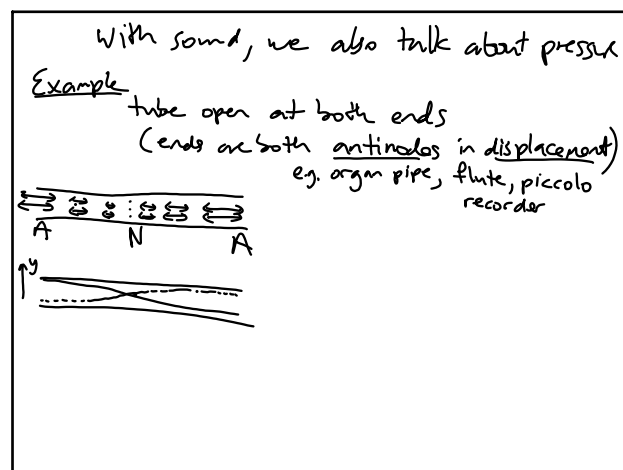 With sound, we also talk about pressure
Example
tube open at both ends
(ends are both antinodes in displacement)
e.g. organ pipe, flute, piccolo
recorder
A N A
y